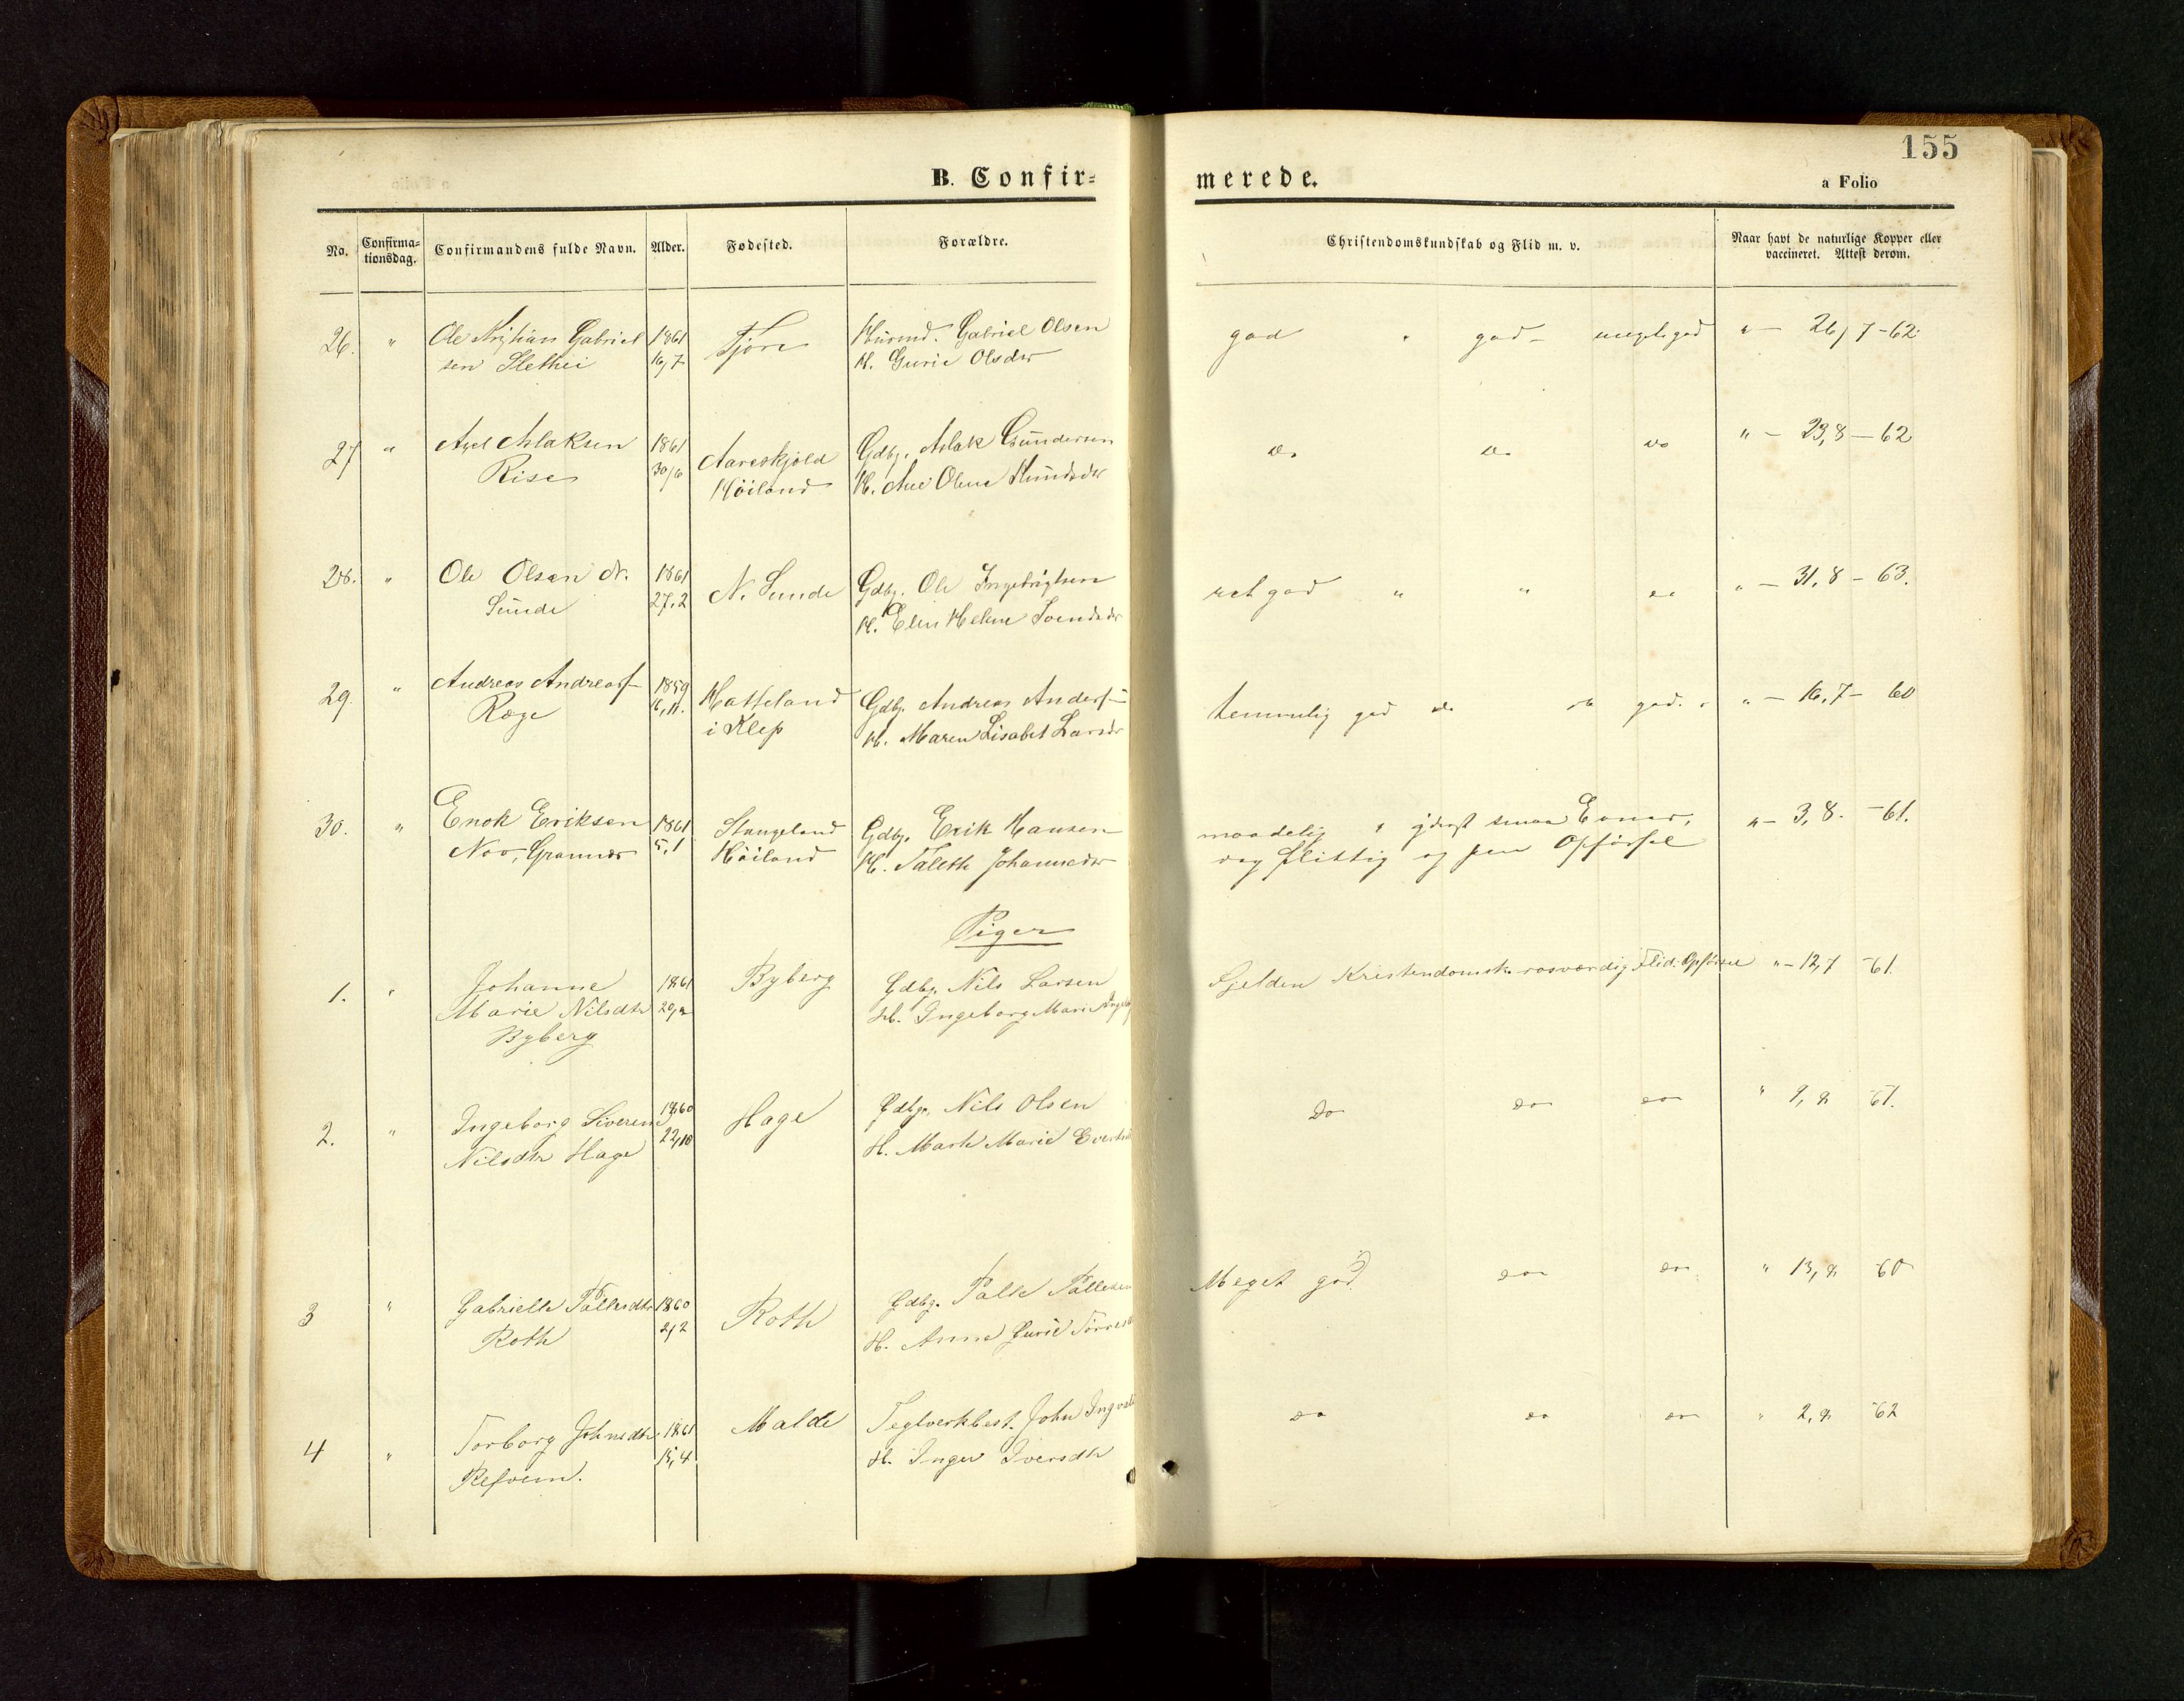 155
B. Confir=
merede.
a Folio
No.
Confirma=
tionsdag.
Confirmandens fulde Navn.
Alder.
Fødested.
Forældre.
Christendomskundskab og Flid m. v.
Naar havt de naturlige Kopper eller
vaccineret. Attest derom.
26. " Ole Kristian Gabriel 1861 Tjöre Husmd. Gabriel Olsen god " god - meget god " - 26/7-62
sen Slethei 16,7 H. Gurie Olsdtr
27 " Axel Aslaksen 1861 Aareskjold Gdbg. Aslak Gundersen do do do " - 23,8 - 62
Rise 30/6 Höiland H. Ane Oline
28. " Ole Olsen N. 1861 N. Sunde Gdbg. Ole Ingebrigtsen ret god " " do " - 31,8 - 63.
Sunde 27,2 H. Elen Helene Svendsdr
29. " Andreas Andreass 1859 Hatteland Gdbg. Andreas Anders temmelig god do god. " - 16,7 - 60
Røge 6,11. i Klep H. Maren Lisabet Larsdr
30. " Enok Eriksen 1861 Stangeland Gdbg. Erik Hansen maadelig yderst smaa Evner, " - 3,8. - 61.
Grannes 5,1 Höiland H. Talette Johannesdr dog flittig og pen Opførsel
Piger
1. " Johanne 1861 Byberg Gdbg. Nils Larsen Sjelden Kristendomsk. rosværdig Flid. Opførsel " - 12,7 -61.
Marie Nilsdtr H. Ingeborg Marie
Byberg
2. " Ingeborg Siverine 1860 Hage Gdbg. Nils Olsen Do do do " 9,8 61.
Nilsdtr Hage 22,10 H. Marte Marie
3 " Gabrielle Pallesdtr 1860 Roth Gdbg. Palle Pallesen Meget god. do do " 13,8 60
Roth 2,2 H. Anne Gurie
4 " Torborg Johnsdtr 1861 Malde Teglverkbest. John do do do " 2,8 62
Refvem. 15,4 H. Inger Iversdtr